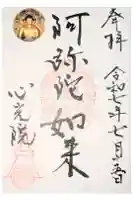 奉拝
令和七年七月吾日
阿弥陀如来
心光院